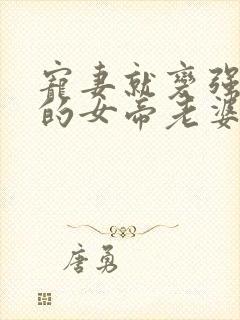 宠妻就变强
的女帝老婆
唐勇